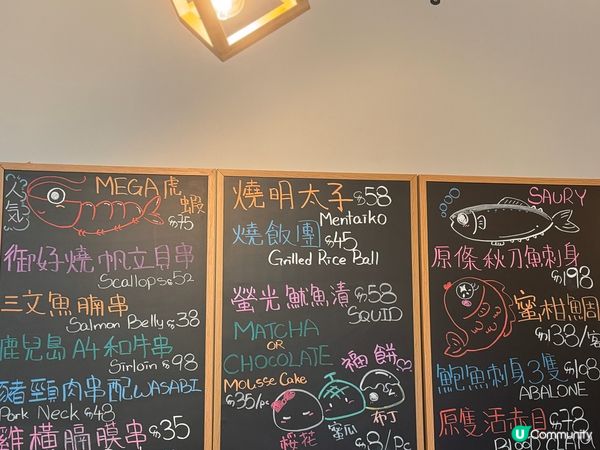 人氣
MEGA虎
蝦
$75
御好燒帆立貝串
Scallops $52
三文魚腩串
Salmon Belly $38
鹿兒島A4和牛串
Sirloin $98
豬頸肉串配WASABI
Pork Neck $48
雞橫膈膜串 $35
燒明太子 $58
Mentaiko
燒飯團 $45
Grilled Rice Ball
螢光魷魚漬 $58
SQUID
MATCHA
OR
CHOCOLATE
Mousse Cake
$36/pc
福餅
櫻花
蜜瓜
布丁
$8/Pc
SAURY
原條秋刀魚刺身
$198
蜜柑魚
$138/客
鮑魚刺身3隻 $108
ABALONE
原隻活赤貝 $78
BLOOD CLAM
U Community